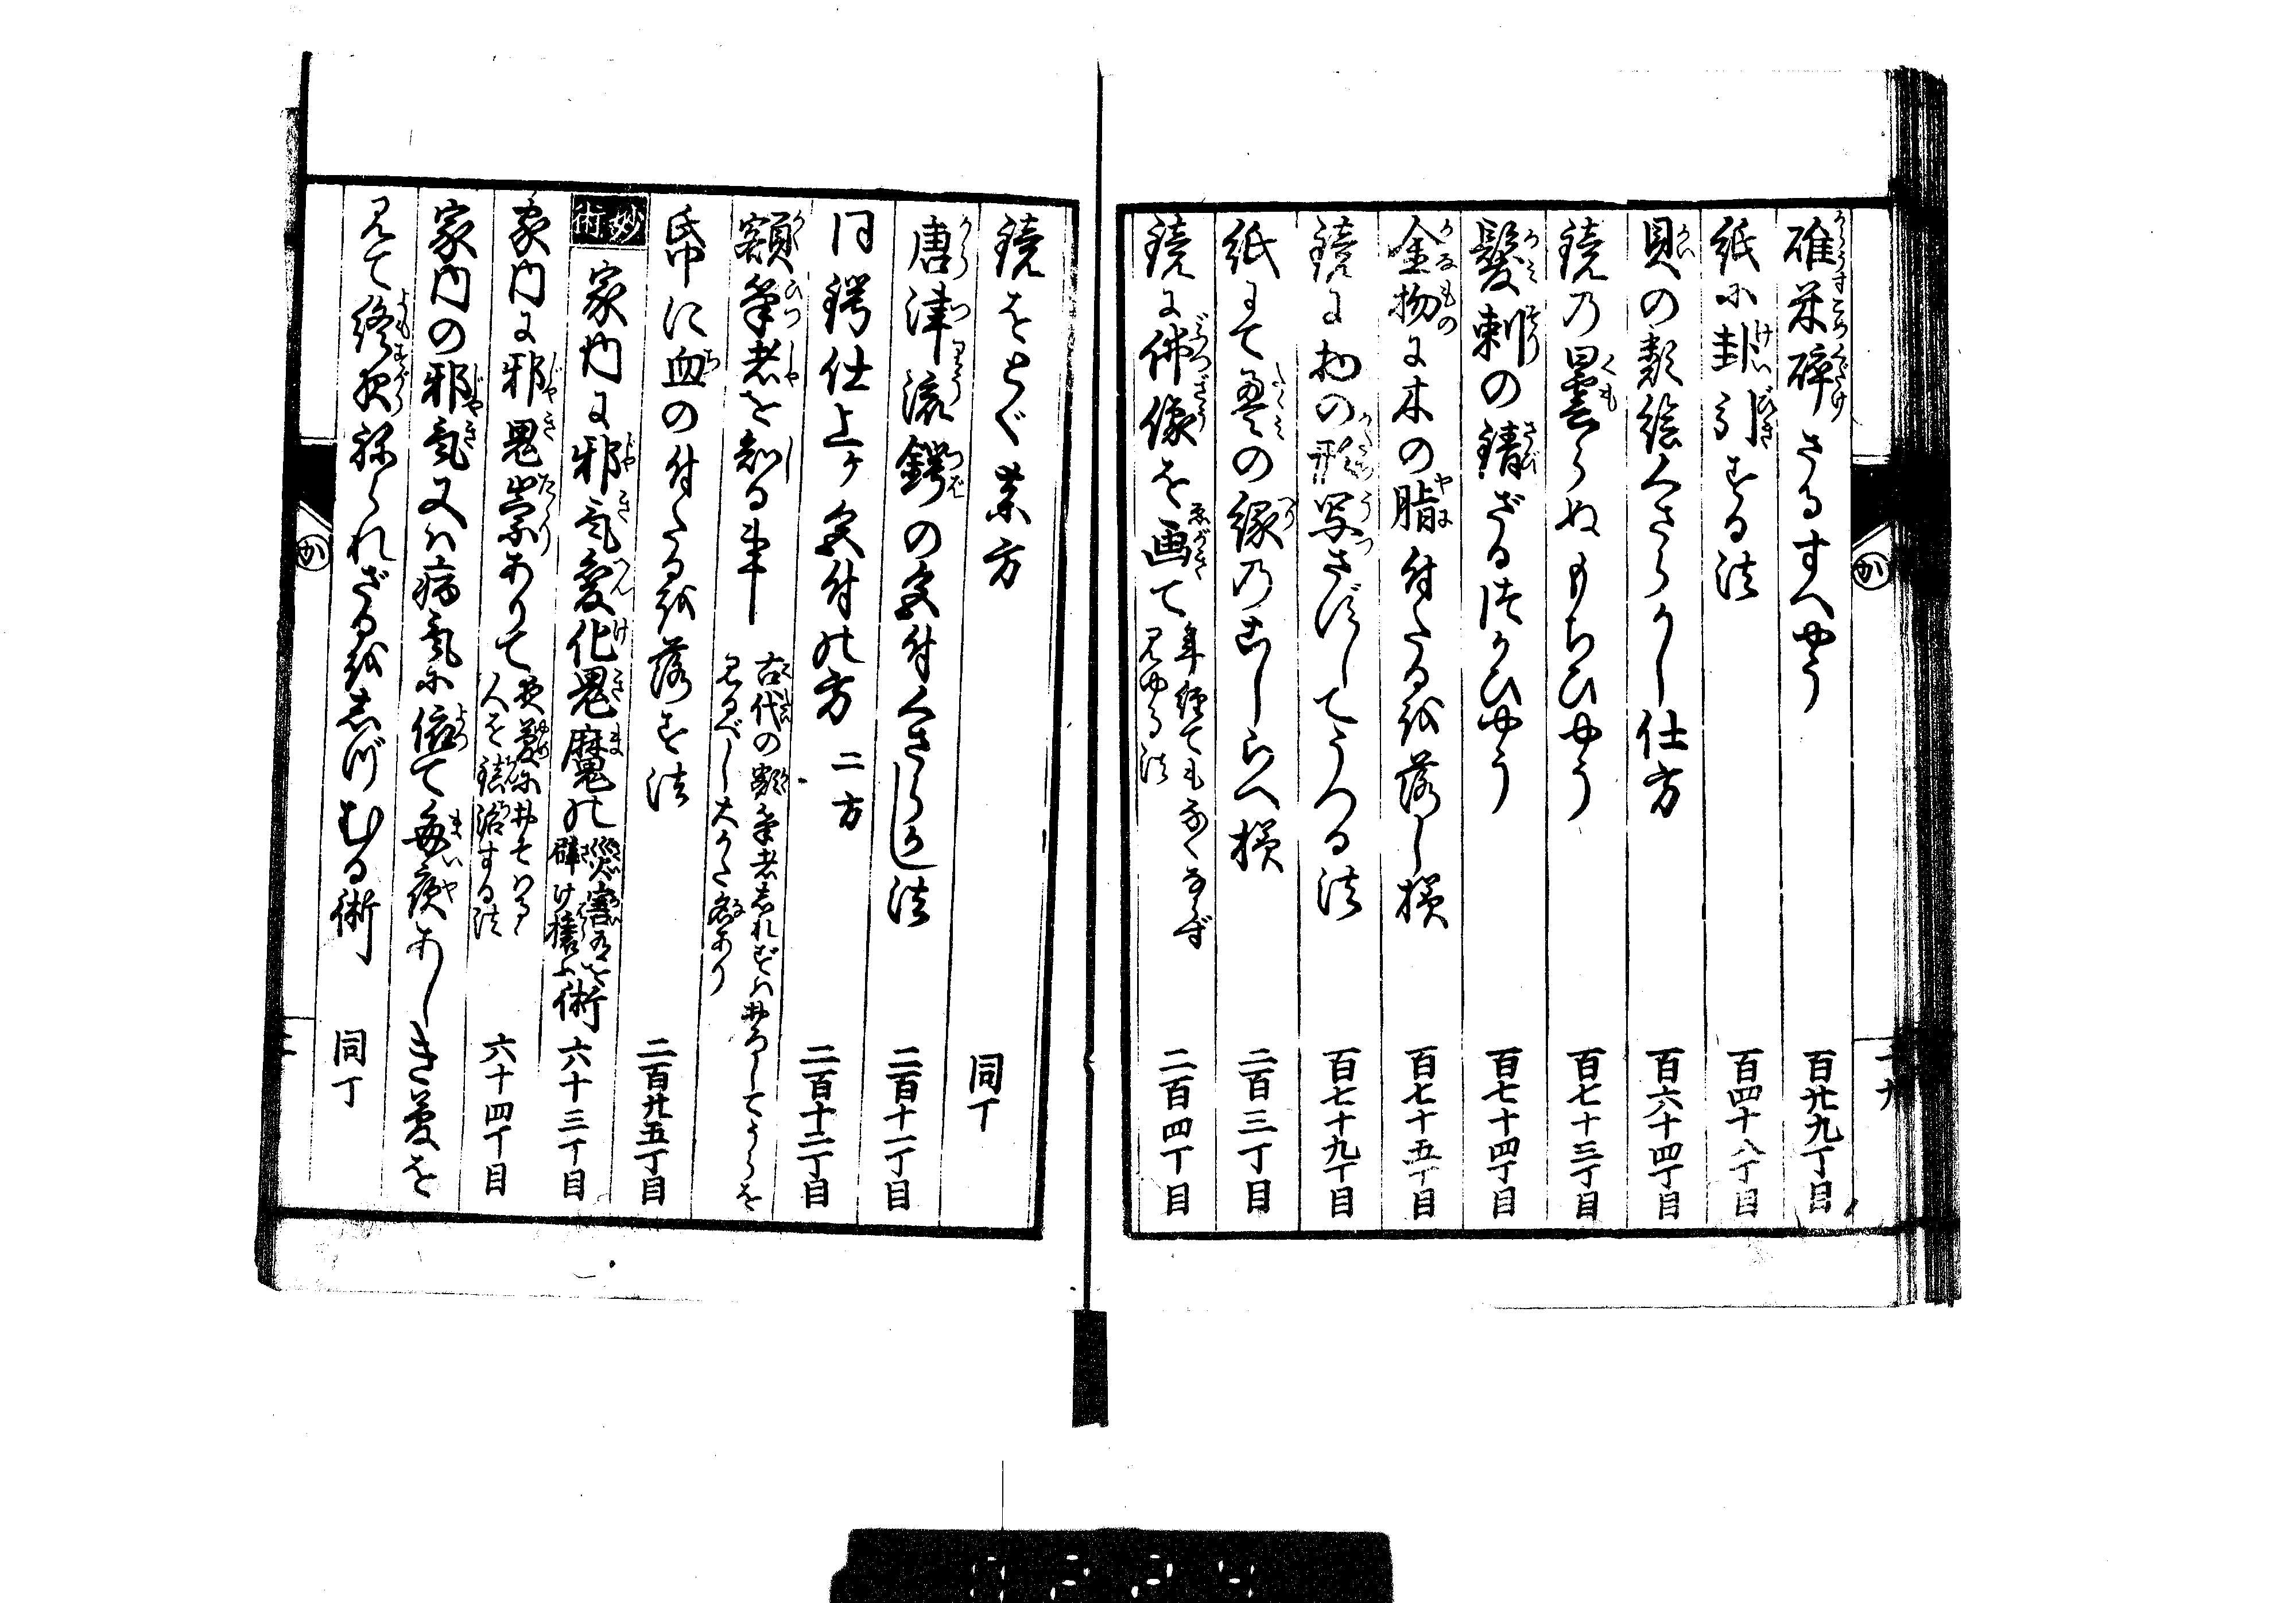 碓米碎ざるすへやう 百廿九丁目
紙に卦引する法 百四十八丁目
貝の類絵くさらかし仕方 百六十四丁目
鏡の曇らぬもちひやう 百七十三丁目
髪剃の錆ざるつかひやう 百七十四丁目
金物に木の脂付たるを落し様 百七十五丁目
鏡に物の形写さずしてうつる法 百七十九丁目
紙にて畳の縁のこしらへ様 二百三丁目
鏡に佛像を画て 年経てもなくならず見ゆる法 二百四丁目
鏡をとぐ薬方 同丁
唐津流鍔の文付くさらかし法 二百十一丁目
同鍔仕上ケ色付の方 二方 二百十二丁目
額筆者を知る事 古代の額筆者しれずは
見るべし大かた名あり
帋巾に血の付たるを落す法 二百廿五丁目
妙術
家内に邪気変化鬼魔の災害為を避け攘ふ術 六十三丁目
家内に邪鬼祟ありて 人を 治する法 六十四丁目
家内の邪気又は病気に依て毎夜あしき夢を
見て終夜ねられざるをしづむる術 同丁
か
か
十九